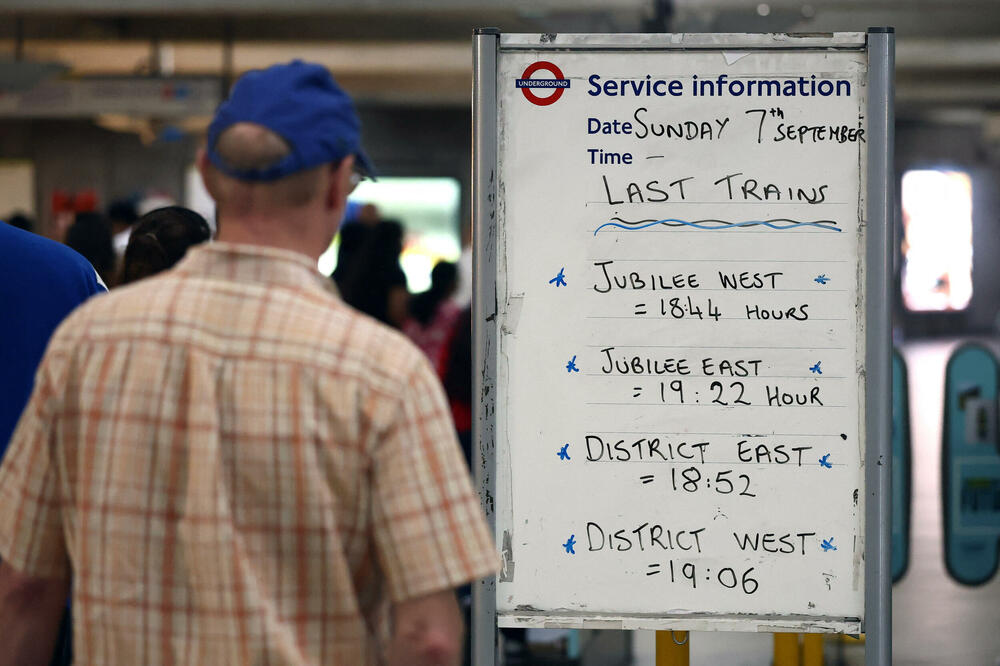 UNDERGROUND
Service information
Date SUNDAY 7th SEPTEMBER
Time –
LAST TRAINS
* JUBILEE WEST *
= 18:44 HOURS
* JUBILEE EAST *
= 19:22 HOUR
* DISTRICT EAST *
= 18:52
* DISTRICT WEST *
= 19:06